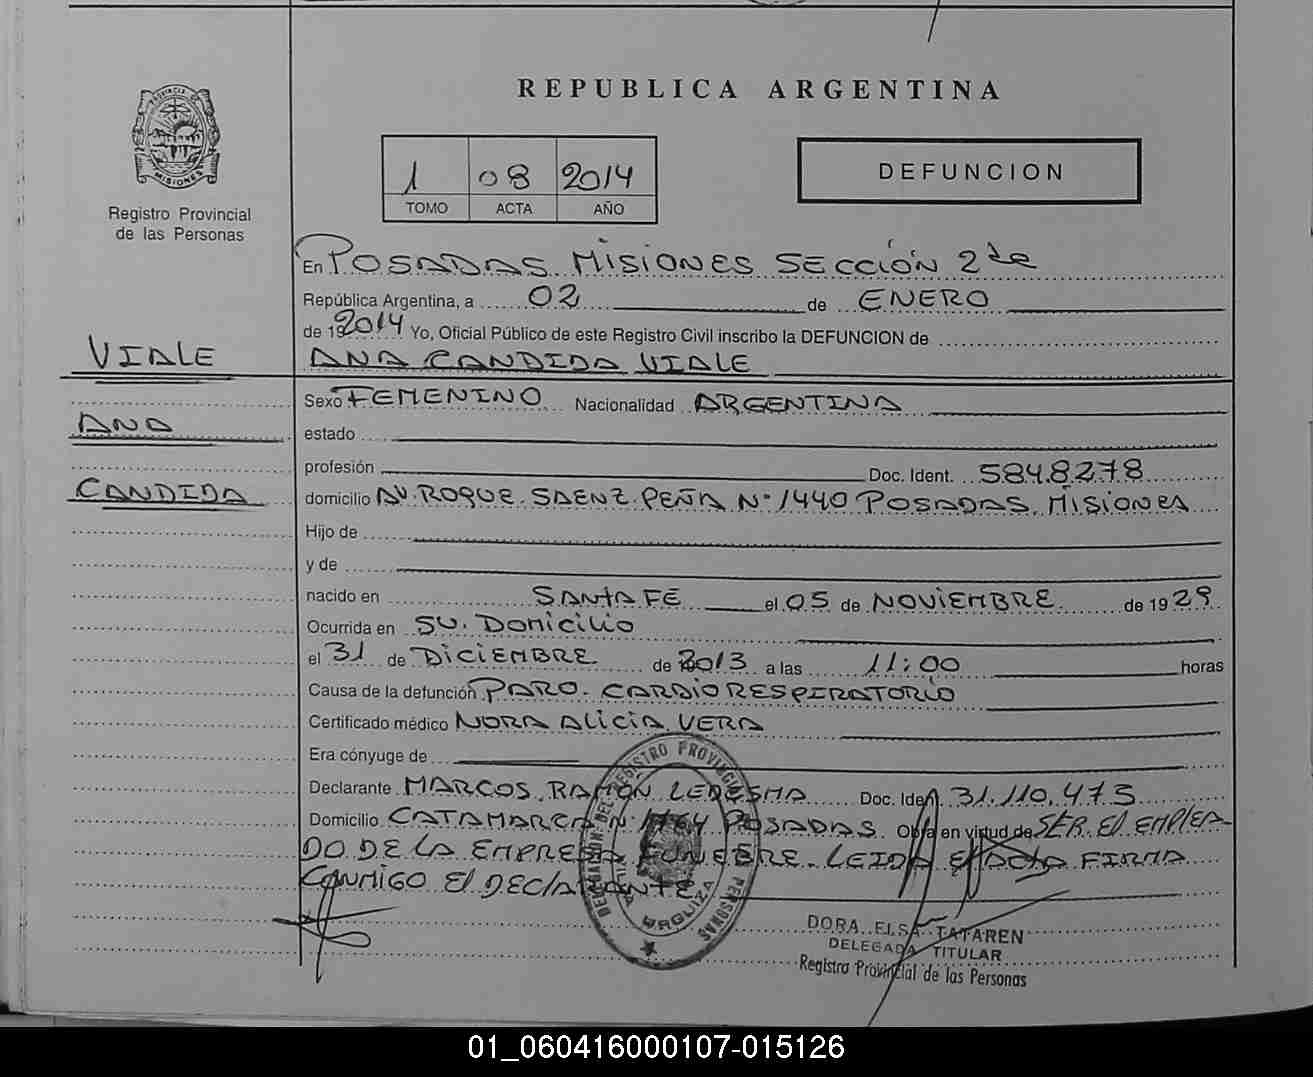 REPUBLICA ARGENTINA
PROVINCIA DE
MISIONES
Registro Provincial
de las Personas
1 08 2014
TOMO ACTA AÑO
DEFUNCION
En POSADAS, MISIONES SECCIÓN 2da
República Argentina, a 02 de ENERO
de 192014 Yo, Oficial Público de este Registro Civil inscribo la DEFUNCION de
VIALE
ANA CANDIDA VIALE
Sexo FEMENINO Nacionalidad ARGENTINA
ANA
estado
profesión Doc. Ident. 5.848.278
CANDIDA
domicilio AV. ROQUE SAENZ PEÑA Nº 1440 POSADAS, MISIONES
Hijo de
y de
nacido en SANTA FÉ el 05 de NOVIEMBRE de 1929
Ocurrida en SU DOMICILIO
el 31 de DICIEMBRE de 2013 a las 11:00 horas
Causa de la defunción PARO CARDIORESPIRATORIO
Certificado médico NORA ALICIA VERA
Era cónyuge de
Declarante MARCOS RAMÓN LEDESMA Doc. Ident. 31.110.473
Domicilio CATAMARCA Nº 1764 POSADAS Obra en virtud de SER EL EMPLEA-
DO DE LA EMPRESA FUNEBRE. LEIDA EL ACTA FIRMA
CONMIGO EL DECLARANTE
DELEGACION DEL REGISTRO PROVINCIAL PERSONAS
URQUIZA
DORA ELSA TATAREN
DELEGADA TITULAR
Registro Provincial de las Personas
01_060416000107-015126